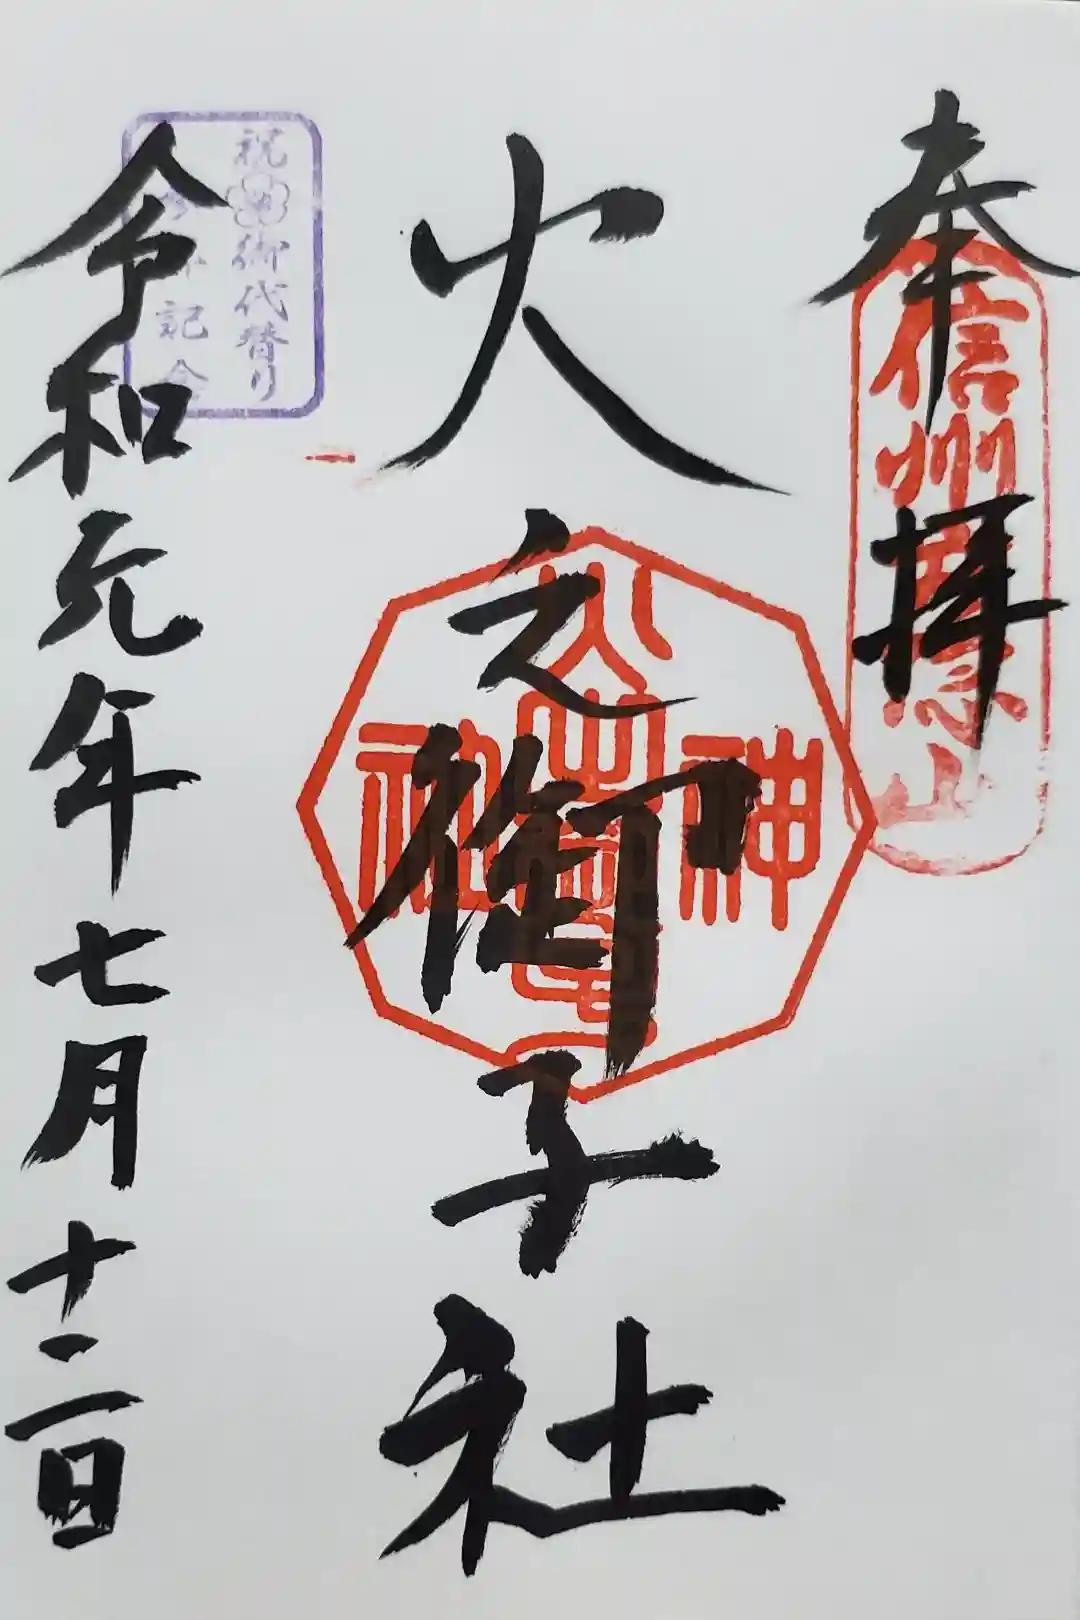 奉拝
信州戸隠山
火之御子社
令和元年七月十二日
祝 御代替り
記念